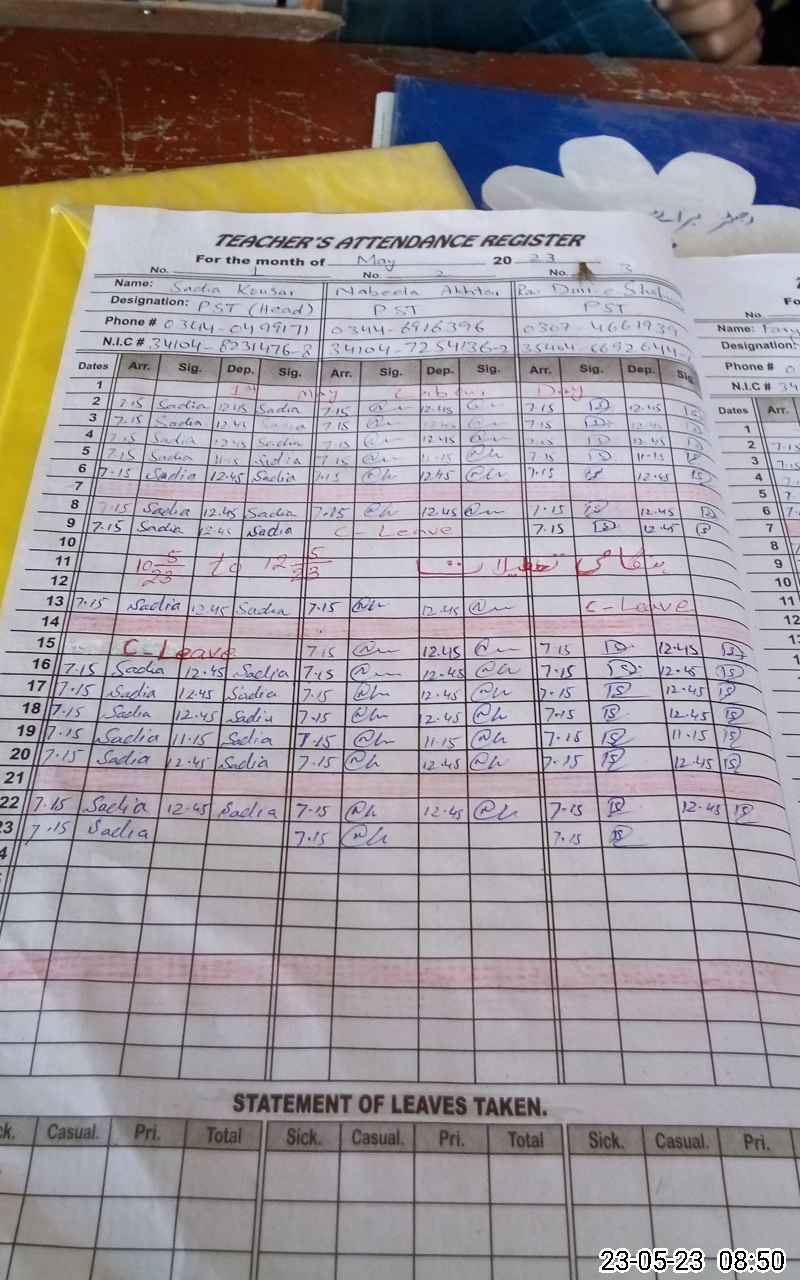 دفتر برائے
TEACHER'S ATTENDANCE REGISTER
For the month of May 2023
No. 1 No. 2 No. 3
Name: Sadia Kousar Nabeela Akhtar
Designation: PST (Head) PST PST
Phone # 0344-0499171 0344-6916396 0307-4661939
N.I.C # 34104-8231476-8 34104-7254136-2
Dates Arr. Sig. Dep. Sig. Arr. Sig. Dep. Sig. Arr. Sig. Dep. Sig.
1 1st May Labour Day
2 7.15 Sadia 12.45 Sadia 7.15 12.45 7.15 12.45
3 7.15 Sadia 12.45 Sadia 7.15 12.45 7.15 12.45
4 7.15 Sadia 12.45 Sadia 7.15 12.45 7.15 12.45
5 7.15 Sadia 11.15 Sadia 7.15 11.15 7.15 11.15
6 7.15 Sadia 12.45 Sadia 7.15 12.45 7.15 12.45
7
8 7.15 Sadia 12.45 Sadia 7.15 12.45 7.15 12.45
9 7.15 Sadia 12.45 Sadia C-Leave 7.15 12.45
10
11 10 5/23 to 12 5/23 مقامی تعطیلات
12
13 7.15 Sadia 12.45 Sadia 7.15 12.45 C-Leave
14
15 C-Leave 7.15 12.45 7.15 12.45
16 7.15 Sadia 12.45 Sadia 7.15 12.45 7.15 12.45
17 7.15 Sadia 12.45 Sadia 7.15 12.45 7.15 12.45
18 7.15 Sadia 12.45 Sadia 7.15 12.45 7.15 12.45
19 7.15 Sadia 11.15 Sadia 7.15 11.15 7.15 11.15
20 7.15 Sadia 12.45 Sadia 7.15 12.45 7.15 12.45
21
22 7.15 Sadia 12.45 Sadia 7.15 12.45 7.15 12.45
23 7.15 Sadia 7.15 7.15
STATEMENT OF LEAVES TAKEN.
Casual. Pri. Total Sick. Casual. Pri. Total Sick. Casual. Pri.
No.
Name:
Designation:
Phone # 0
N.I.C # 34
Dates Arr.
1
2
3
4
5
6
7
8
9
10
11
12
13
14
23-05-23 08:50